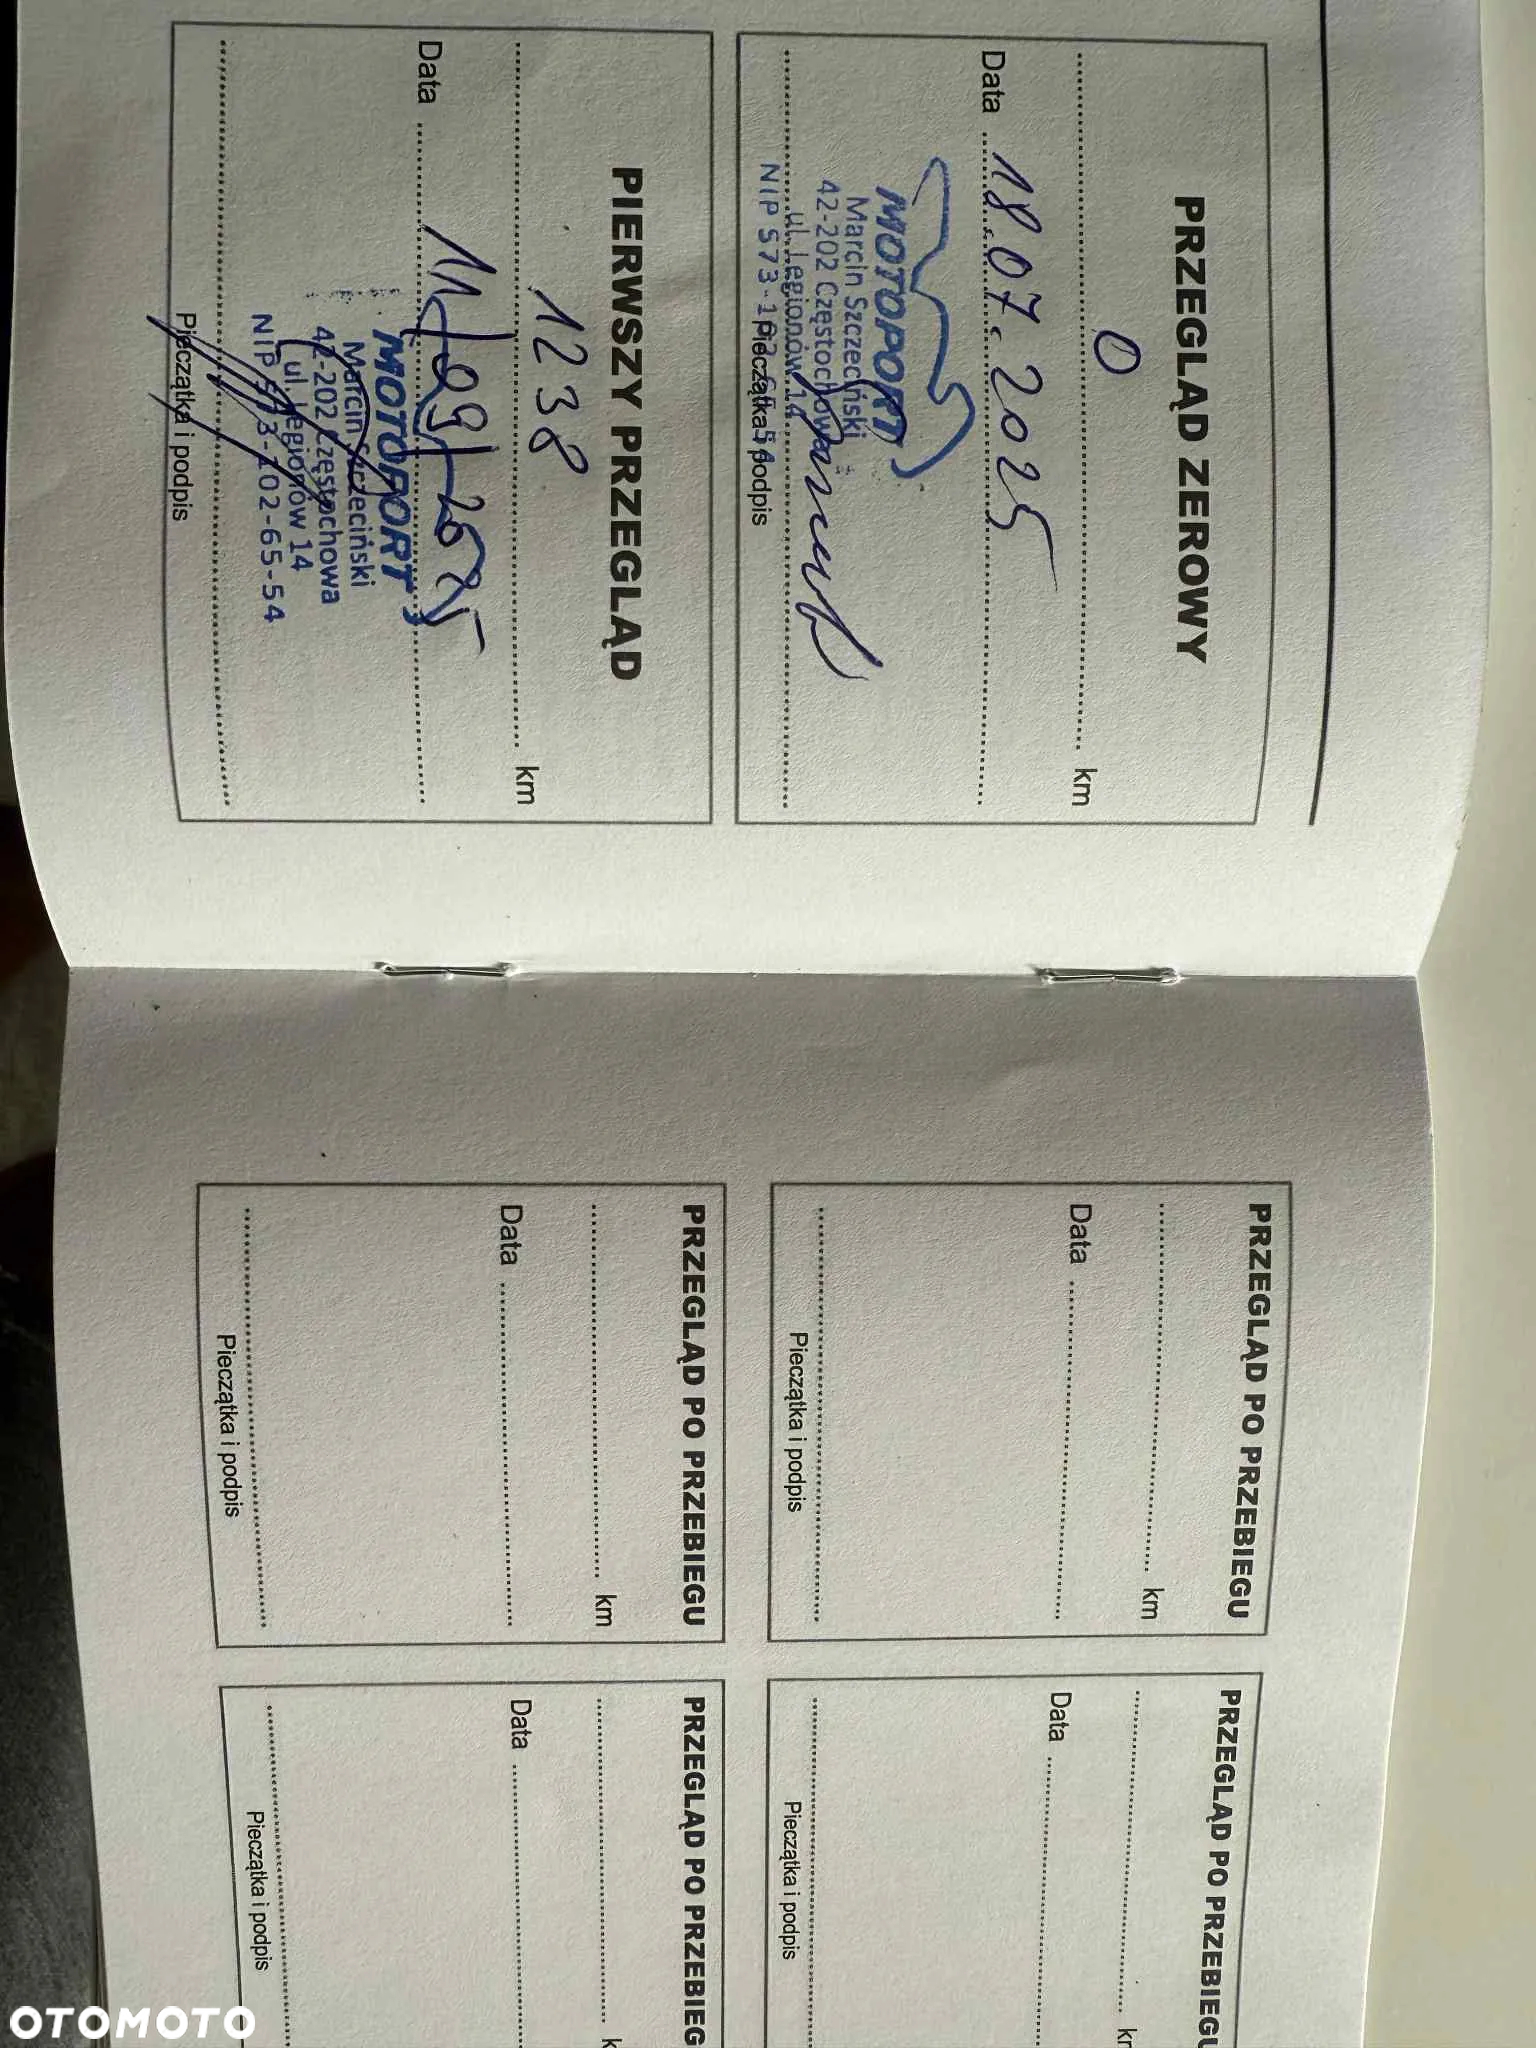 PRZEGLĄD ZEROWY
0
km
Data 18.07.2025
MOTOPORT
Marcin Szczeciński
42-202 Częstochowa
ul. Legionów 14
NIP 573-102-65-54
Pieczątka i podpis
PIERWSZY PRZEGLĄD
1238
km
Data 11/09/2025
MOTOPORT
Marcin Szczeciński
42-202 Częstochowa
ul. Legionów 14
NIP 573-102-65-54
Pieczątka i podpis
PRZEGLĄD PO PRZEBIEGU
km
Data
Pieczątka i podpis
PRZEGLĄD PO PRZEBIEGU
km
Data
Pieczątka i podpis
PRZEGLĄD PO PRZEBIEGU
km
Data
Pieczątka i podpis
PRZEGLĄD PO PRZEBIEG
k
Data
Pieczątka i podpis
OTOMOTO